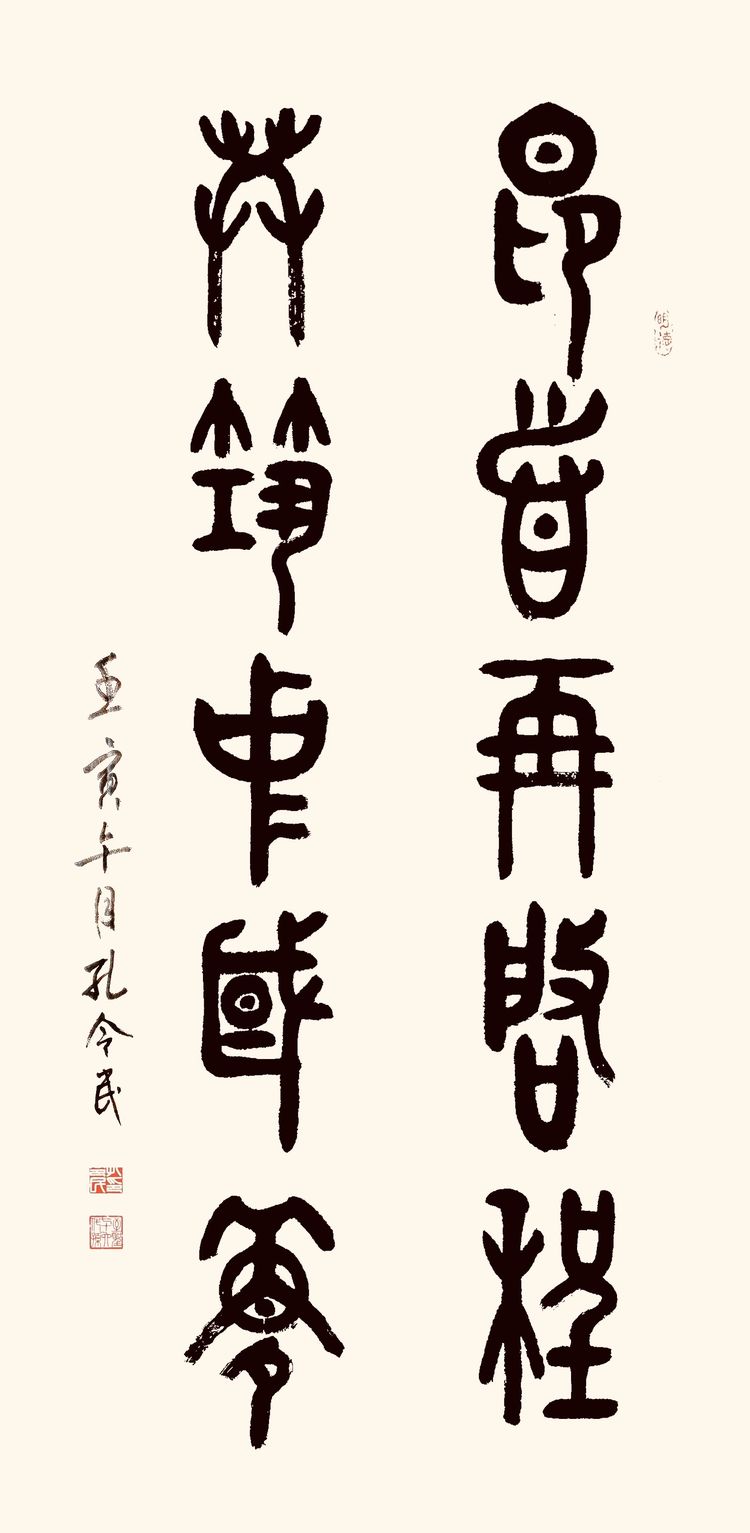 昂首再启程
共筑中国梦
壬寅年月孔令民